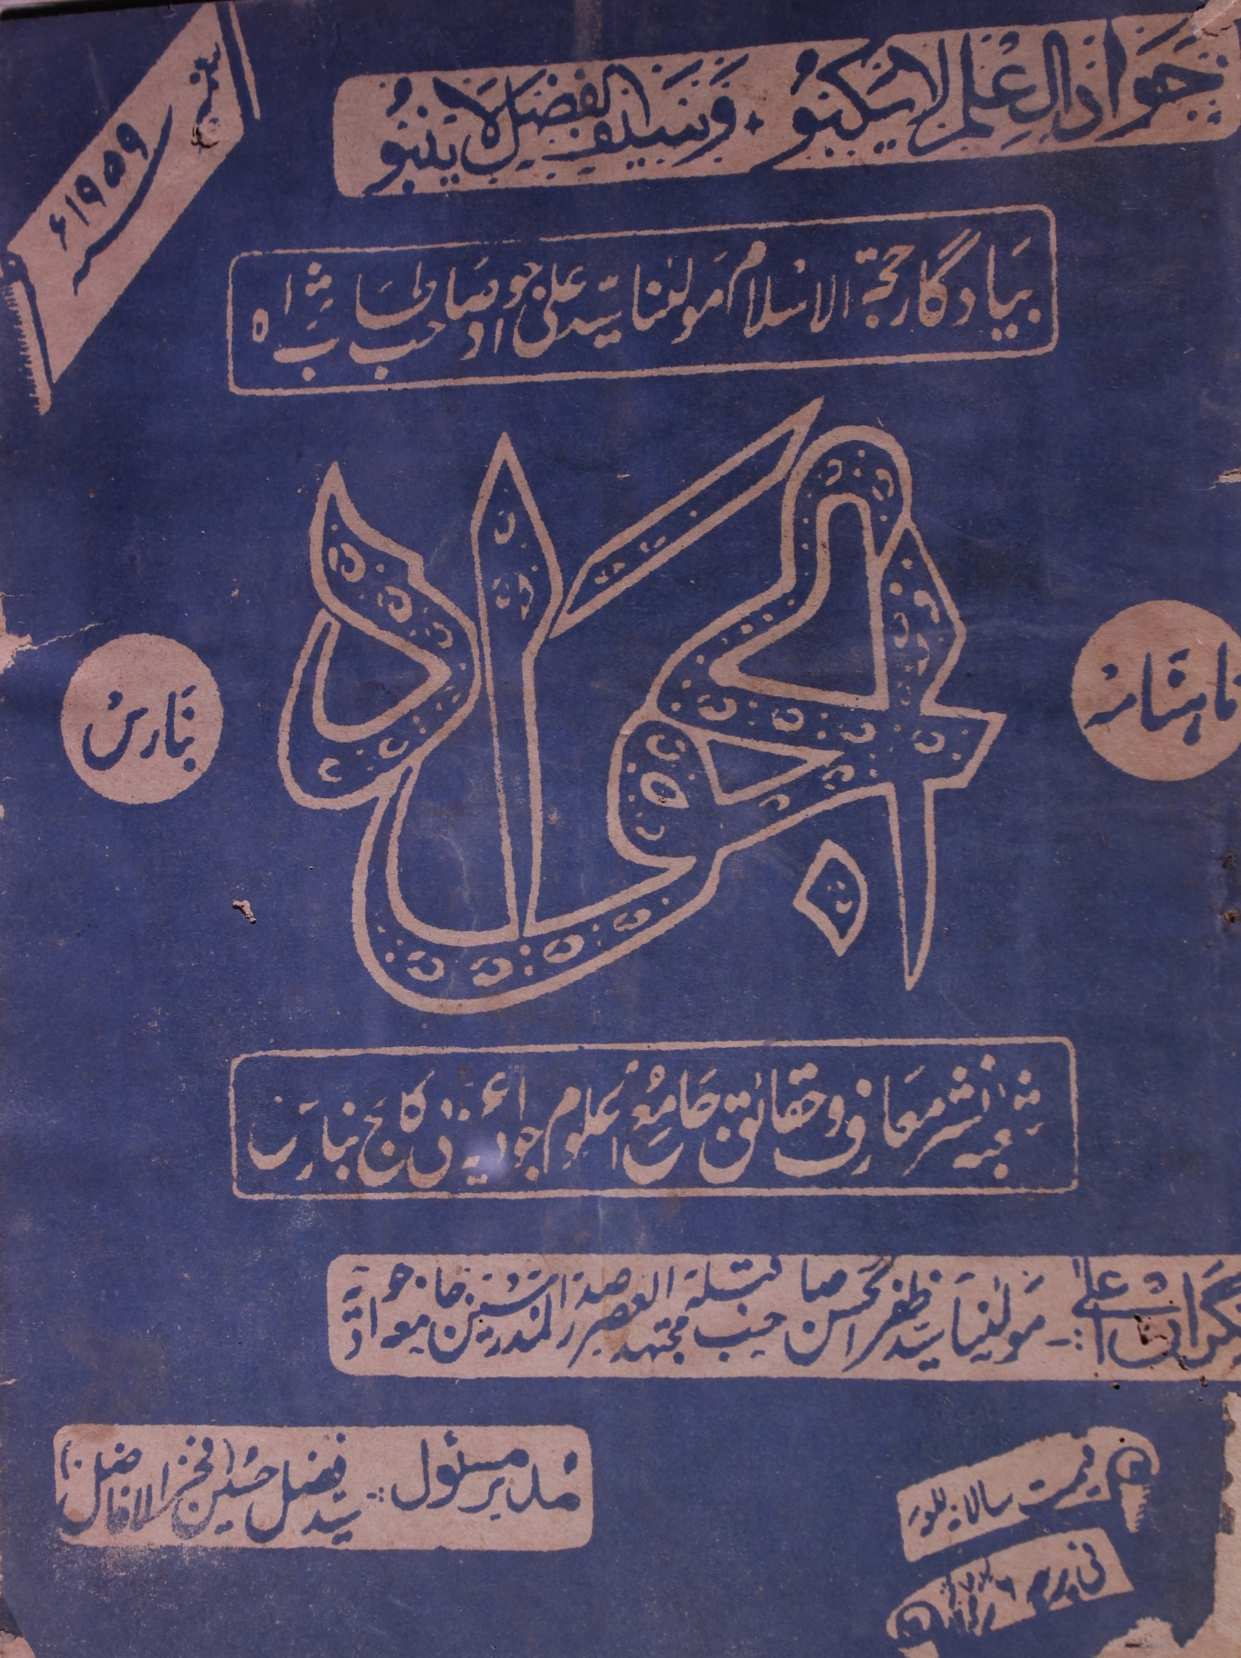 جَوَادُ الْعِلْمِ لَا يَكْبُو ٭ وَسَيْفُ الْفَضْلِ لَا يَنْبُو
۱۹۵۹ء
بیادگار حجۃ الاسلام مولٰنا سید علی جواد صاحب طاب ثراہ
الجواد
ماہنامہ
بنارس
شعبۂ نشر معارف و حقائق جامع العلوم جوادیہ کالج بنارس
نگران اعلیٰ:۔ مولٰینا سید ظفر الحسن صاحب قبلہ مجتہد العصر صدر المدرسین جامعہ جوادیہ
مدیر مسئول :: سید فضل حسین (فخر الافاضل)
قیمت سالانہ
فی پرچہ ۶